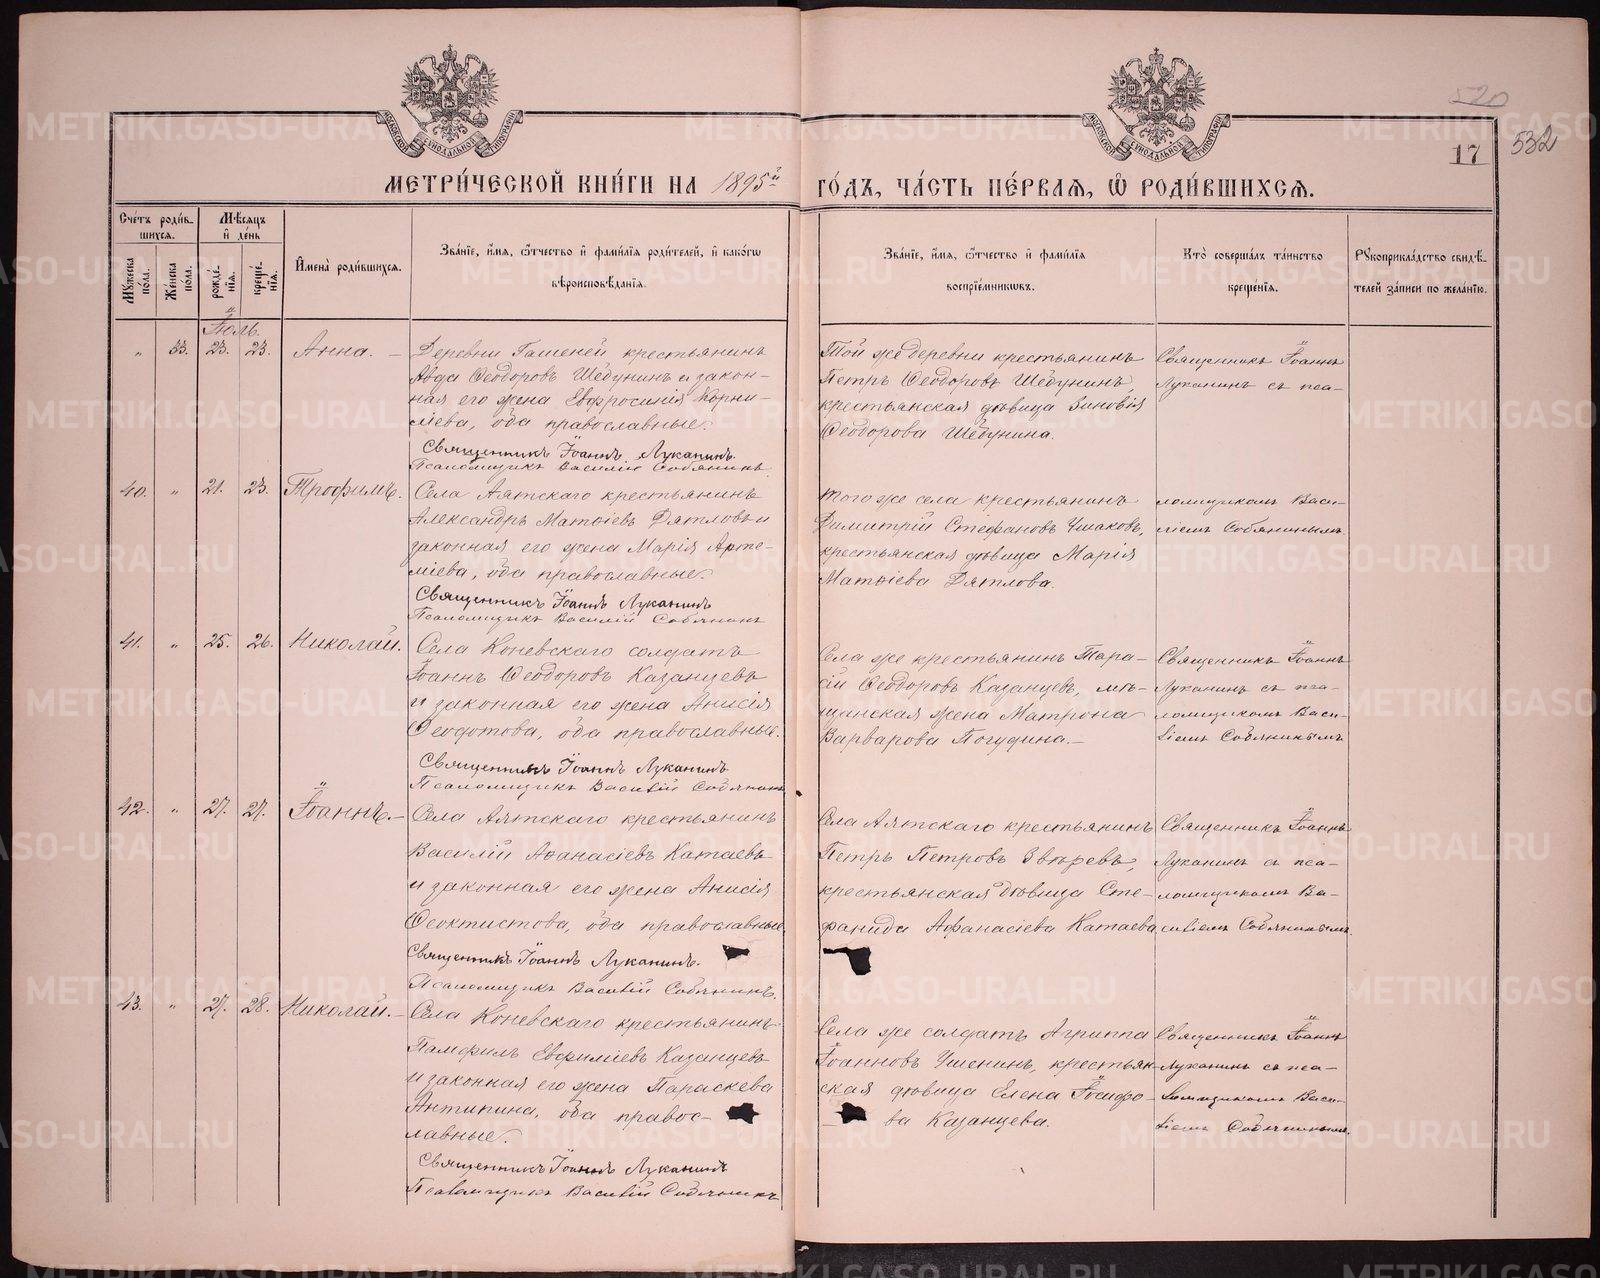 МЕТРИ́ЧЕСКОЙ КНИ́ГИ НА 1895й ГО́ДЪ, ЧА́СТЬ ПЕ́РВАЯ, Ѡ РОДИ́ВШИХСЯ.
520
532
17
МОСКОВСКОЙ СѴНОДАЛЬНОЙ ТИПОГРАФІИ
МОСКОВСКОЙ СѴНОДАЛЬНОЙ ТИПОГРАФІИ
Сче́тъ роди́в-
шихся.
Му́жеска по́ла.
Же́нска по́ла.
Мѣ́сяцъ
и҆ де́нь
рожде́-
нїя.
креще́-
нїя.
И҆мена̀ роди́вшихся.
Зва́нїе, и҆́мя, ѻ҆́тчество и҆ фами́лїя роди́телей, и҆ како́гѡ
вѣроисповѣ́данїя.
Зва́нїе, и҆́мя, ѻ҆́тчество и҆ фами́лїя
воспрїе́мниковъ.
Кто̀ соверша́лъ та́инство
креще́нїя.
Рꙋкоприкла́дство свидѣ́-
телей за́писи по жела́нїю.
Іюль.
„ 33. 23. 23. Анна. –
Деревни Гашеней крестьянинъ
Авда Ѳеодоровъ Шебунинъ и закон-
ная его жена Евфросинія Корни-
ліева, оба православные.
Священникъ Іоаннъ Луканинъ.
Псаломщикъ Василій Собянинъ
Той же деревни крестьянинъ
Петръ Ѳеодоровъ Шебунинъ,
крестьянская дѣвица Зиновія
Ѳеодорова Шебунина.
Священникъ Іоаннъ
Луканинъ съ пса-
40. „ 21. 23. Трофимъ.
Села Аятскаго крестьянинъ
Александръ Матѳіевъ Дятловъ и
законная его жена Марія Арте-
міева, оба православные.
Священникъ Іоаннъ Луканинъ
Псаломщикъ Василій Собянинъ
Того же села крестьянинъ
Димитрій Стефановъ Ушаковъ,
крестьянская дѣвица Марія
Матѳіева Дятлова.
ломщикомъ Васи-
ліемъ Собянинымъ
41. „ 25. 26. Николай.
Села Коневскаго солдатъ
Іоаннъ Ѳеодоровъ Казанцевъ
и законная его жена Анисія
Ѳеодотова, оба православные.
Священникъ Іоаннъ Луканинъ
Псаломщикъ Василій Собянинъ
Села же крестьянинъ Тара-
сій Ѳеодоровъ Казанцевъ, мѣ-
щанская жена Матрона
Варварова Погудина. –
Священникъ Іоаннъ
Луканинъ съ пса-
ломщикомъ Васи-
ліемъ Собянинымъ
42. „ 27. 27. Іоаннъ. –
Села Аятскаго крестьянинъ
Василій Аѳанасіевъ Катаевъ
и законная его жена Анисія
Ѳеоктистова, оба православные
Священникъ Іоаннъ Луканинъ.
Псаломщикъ Василій Собянинъ.
Села Аятскаго крестьянинъ
Петръ Петровъ Звѣревъ,
крестьянская дѣвица Сте-
фанида Афанасіева Катаева
Священникъ Іоаннъ
Луканинъ съ пса-
ломщикомъ Ва-
силіемъ Собянинымъ.
43. „ 27. 28. Николай. –
Села Коневскаго крестьянинъ
Памфилъ Евфиміевъ Казанцевъ
и законная его жена Параскева
Антипина, оба правос-
лавные.
Священникъ Іоаннъ Луканинъ
Псаломщикъ Василій Собянинъ
Села же солдатъ Агриппа
Іоанновъ Ушенинъ, крестьян-
ская дѣвица Елена Іосифо-
ва Казанцева.
Священникъ Іоаннъ
Луканинъ съ пса-
ломщикомъ Васи-
ліемъ Собянинымъ.
METRIKI.GASO-URAL.RU